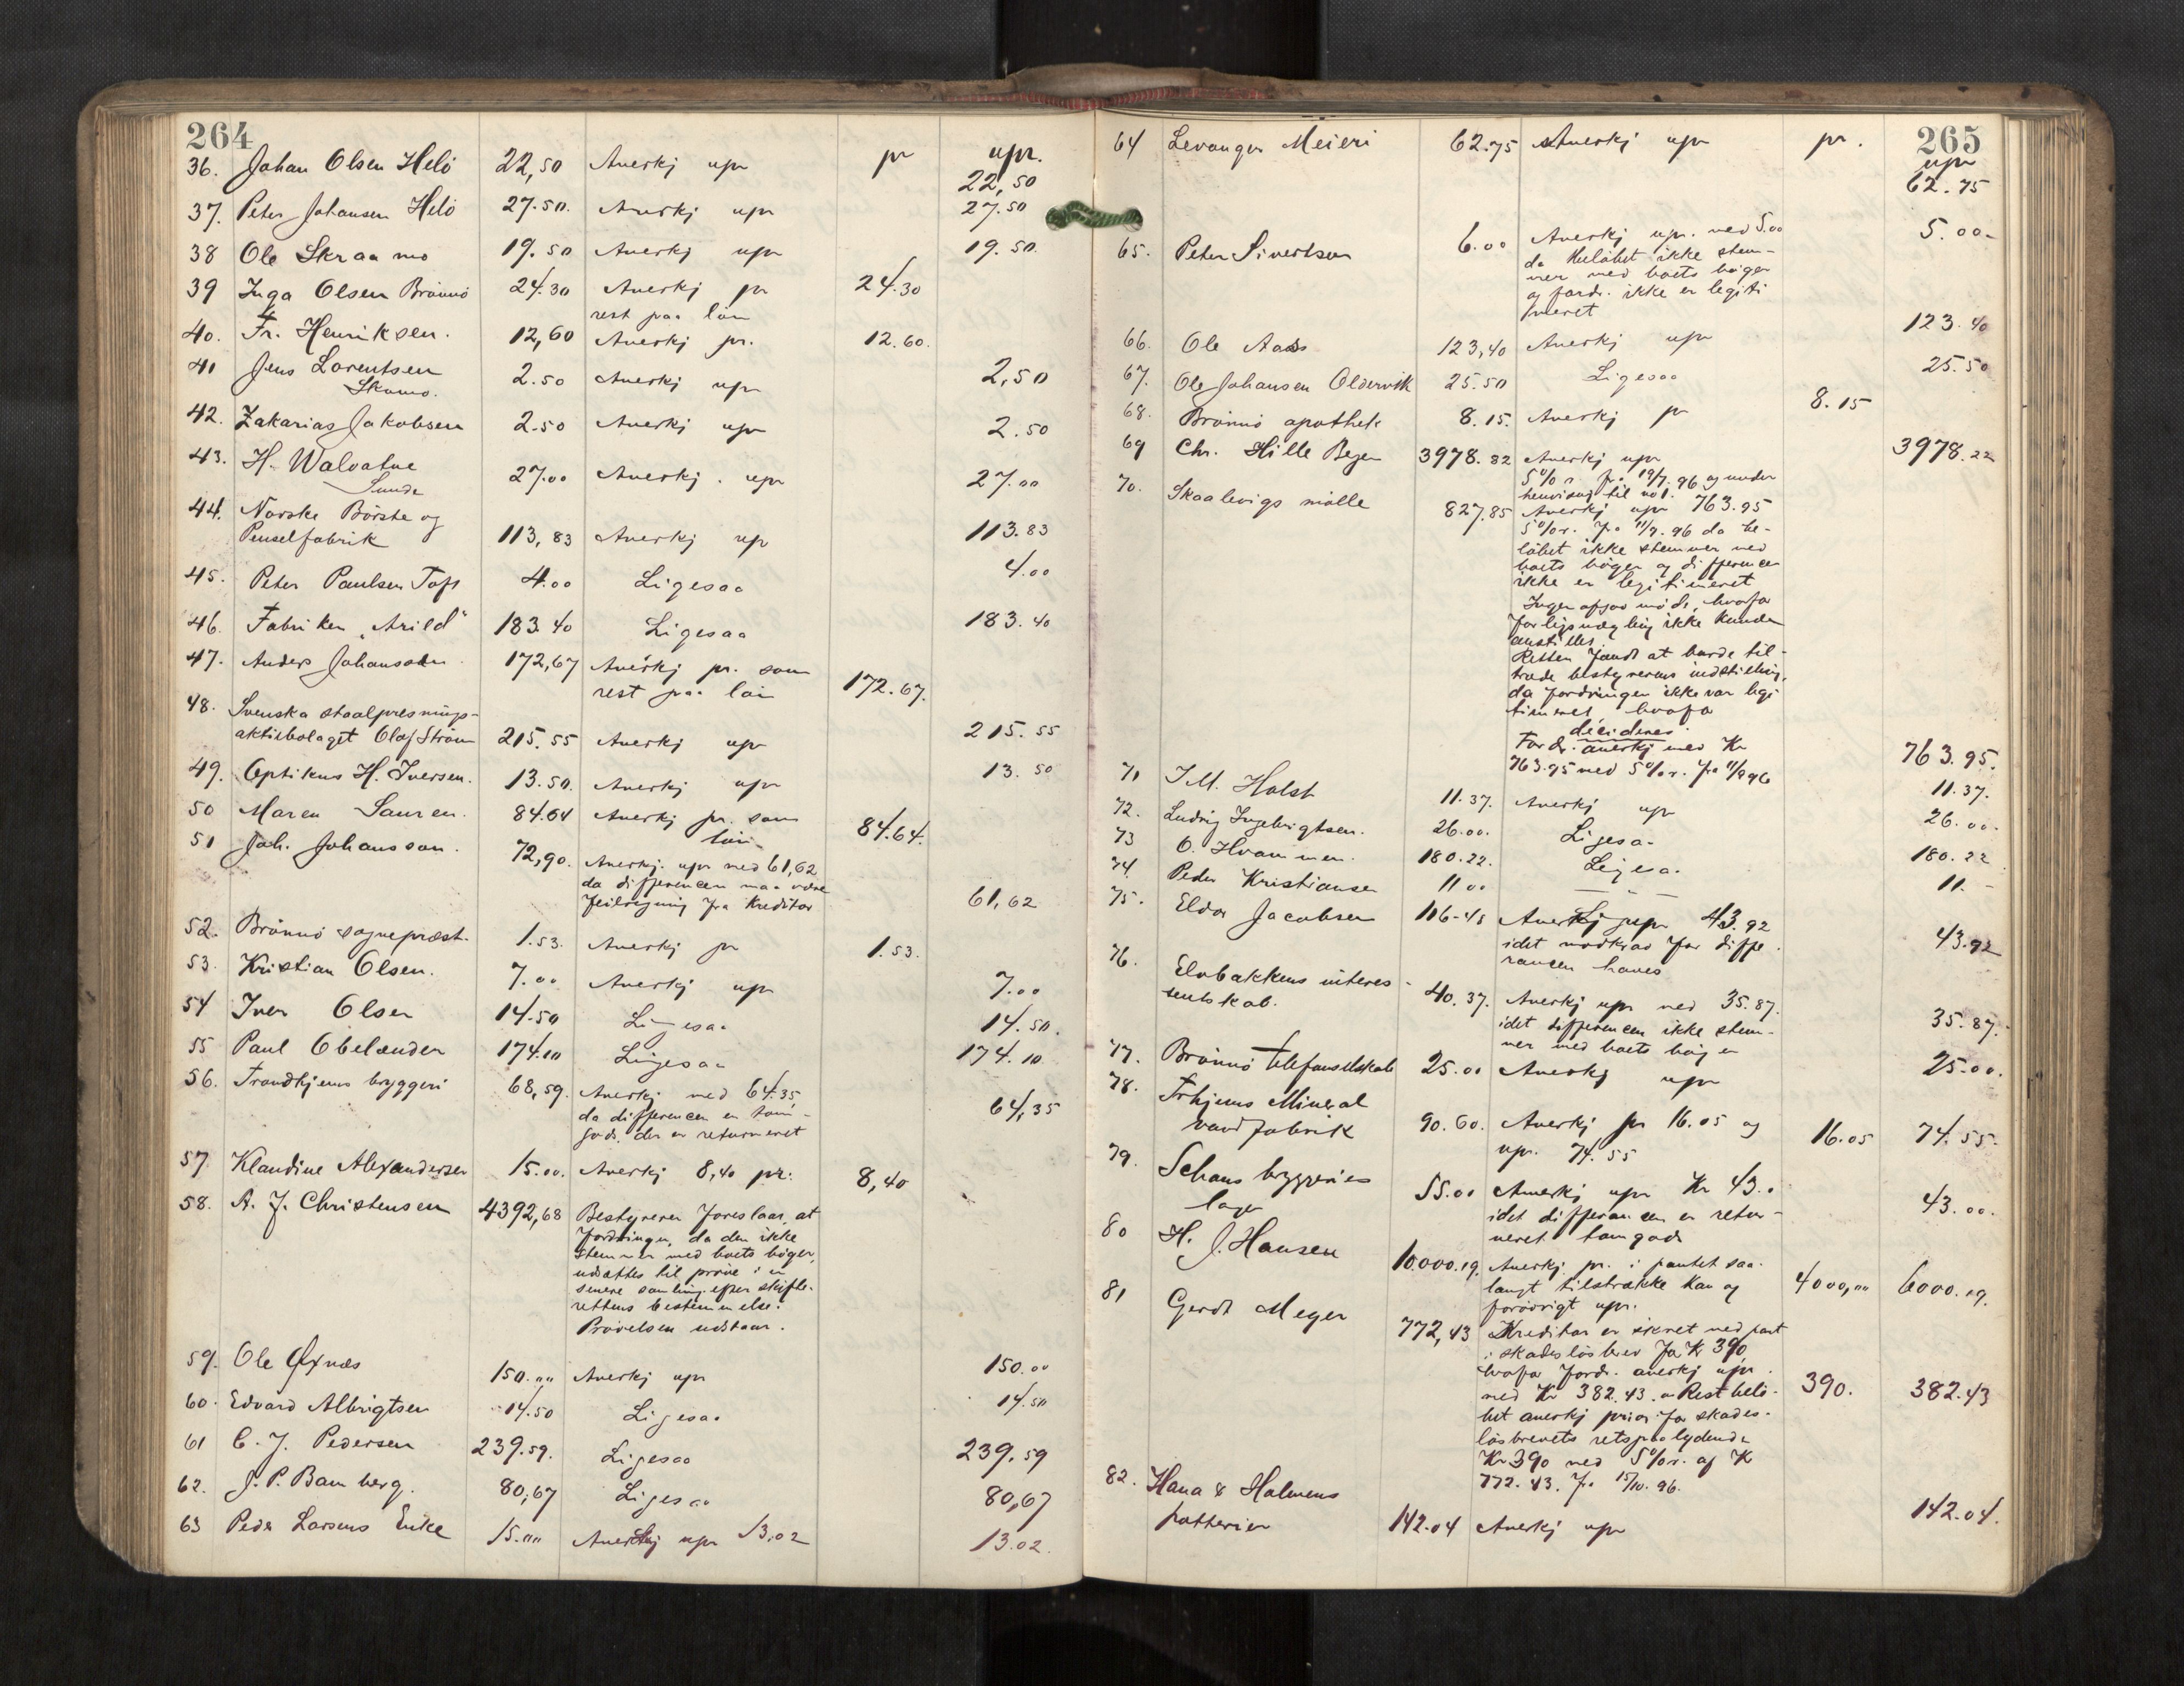 264
pr upr.
36. Johan Olsen Helö 22,50 Anerkj upr 22,50
37. Peter Johansen Helö 27.50. Anerkj upr 27.50
38 Ole Skraamo 19.50 Anerkj upr 19.50.
39 Inga Olsen Brönnö 24.30 Anerkj pr 24.30
rest paa lön
40. Fr. Henriksen. 12,60 Anerkj pr. 12.60.
41 Jens Lorentsen 2.50 Anerkj upr 2,50
Skomo.
42. Zakarias Jakobsen 2.50 Anerkj upr 2.50
43. H. Walvatne 27.00 Anerkj. upr 27.00
Sunde
44. Norske Börste og
Penselfabrik 113,83 Anerkj up 113.83
45. Peter Paulsen Toft 4.00 Ligesaa 4.00
46. Fabriken „Arild" 183.40 Ligesaa 183.40
47. Anders Johansson 172,67 Anerkj pr. som
rest paa lön 172.67.
48. Svenska staalpresnings-
aktiebolaget Olof Ström 215.55 Anerkj upr 215.55
49. Optikus H. Iversen. 13.50. Anerkj upr 13.50
50 Maren Sauren. 84.64 Anerkj pr. som
lön 84.64.
51 Joh. Johansson. 72,90. Anerkj. upr med 61,62
da differencen maa være
feilregning fra Kreditor 61,62
52. Brönnö sognepræst. 1.53. Anerkj pr 1.53.
53. Kristian Olsen. 7.00 Anerkj upr 7.00
54 Iver Olsen 14.50 Ligesaa 14.50.
55 Paul Obelænder 174.10 Ligesaa 174.10
56. Trondhjems bryggeri 68,59. Anerkj med 64.35,
da differencen er tom-
gods, der er returneret 64,35
57 Klaudine Alexandersen 15.00. Anerkj 8,40 pr. 8,40
58. A. J. Christensen 4392,68 Bestyreren foreslaar, at
fordringen, da den ikke
stemmer med boets böger,
udsættes til pröve i en
senere samling efter skifte-
rettens bestemmelse.
Prövelsen udstaar.
59. Ole Øxnæs 150.00 Anerkj upr 150.00
60. Edvard Albrigtsen 14.50 Ligesaa 14.50
61 C. J. Pedersen 239.59. Ligesaa 239,59
62. J. P. Bamberg. 80,67 Ligesaa 80,67
63 Peder Larsens Enke 15.00 Anerkj upr 13,02 13.02.
265
pr. upr
64 Levanger Meieri 62.75 Anerkj upr 62.75
65. Peter Sivertsen 6.00 Anerkj upr. med 5.00 5.00-
da belöbet ikke stem-
mer med boets böger
og fordr. ikke er legiti
meret
66. Ole Aas 123,40 Anerkj upr 123.40
67. Ole Johansen Oldervik 25.50 Ligesaa 25.50
68. Brönnö apothek 8.15. Anerkj pr 8.15
69 Chr. Hille Beyer 3978.22 Anerkj upr 3978.22
5% r. fra 19/7.96 og under
henvisning til no 1.
70. Skaalevigs mölle 827.85 Anerkj upr 763.95
5% r. fra 11/9.96 da be-
löbet ikke stemmer med
boets böger og differencen
ikke er legitimeret
Ingen afgav möde, hvorfor
forligsmægling ikke kunde
anstilles.
Retten fandt at burde til-
træde bestyrerens indstilling,
da fordringen ikke var legi
timeret hvorfor
decideres:
Fordr. anerkj med Kr
763.95 med 5% r. fra 11/9 96 763.95.
71 I M. Holst 11.37. Anerkj upr 11.37.
72. Ludvig Ingebrigtsen. 26.00. Ligesa- 26.00.
73 O. Hvammen. 180.22. Ligesa. 180.22
74 Peder Kristiansen 11 00 — — 11.-
75. Eldor Jacobsen 106-45 Anerkj upr 43.92
idet modkrav for diffe-
rancen haves 43.92
76. Elvbakkens interes-
sentskab. 40.37. Anerkj upr med 35.87.
idet differencen ikke stem-
mer med boets böger 35.87.
77. Brönnö telefonselskab 25.00 Anerkj upr 25.00.
78. Trhjems Mineral
vandfabrik 90.60. Anerkj pr 16.05 og
upr. 74.55 16.05 74.55-
79. Schous bryggeries
lager 55.00 Anerkj upr Kr 43.0
idet differancen er retur-
neret tomgods 43.00.
80 H. J. Hansen 10.000.19. Anerkj. pr. i pantet saa-
langt tilstrække kan og
forövrigt upr. 4000,00 6000.19.
81 Gerdt Meyer 772,43 Kreditor er sikret med pant
i skadeslösbrev for Kr 390
hvorfor fordr. anerkj upr
med Kr 382.43. Restbelö-
bet anerkj prior for skades-
lösbrevets retspaalydende
Kr 390 med 5% r. af Kr
772.43. fra 15/10. 96. 390. 382.43
82. Hana & Holmens
potterier 142.04 Anerkj upr 142.04.